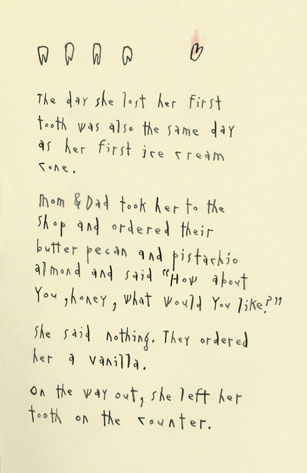 The day she lost her first
tooth was also the same day
as her first ice cream
cone.
Mom & Dad took her to the
shop and ordered their
butter pecan and pistachio
almond and said "How about
You, honey, what would You like?"
She said nothing. They ordered
her a vanilla.
On the way out, she left her
tooth on the counter.